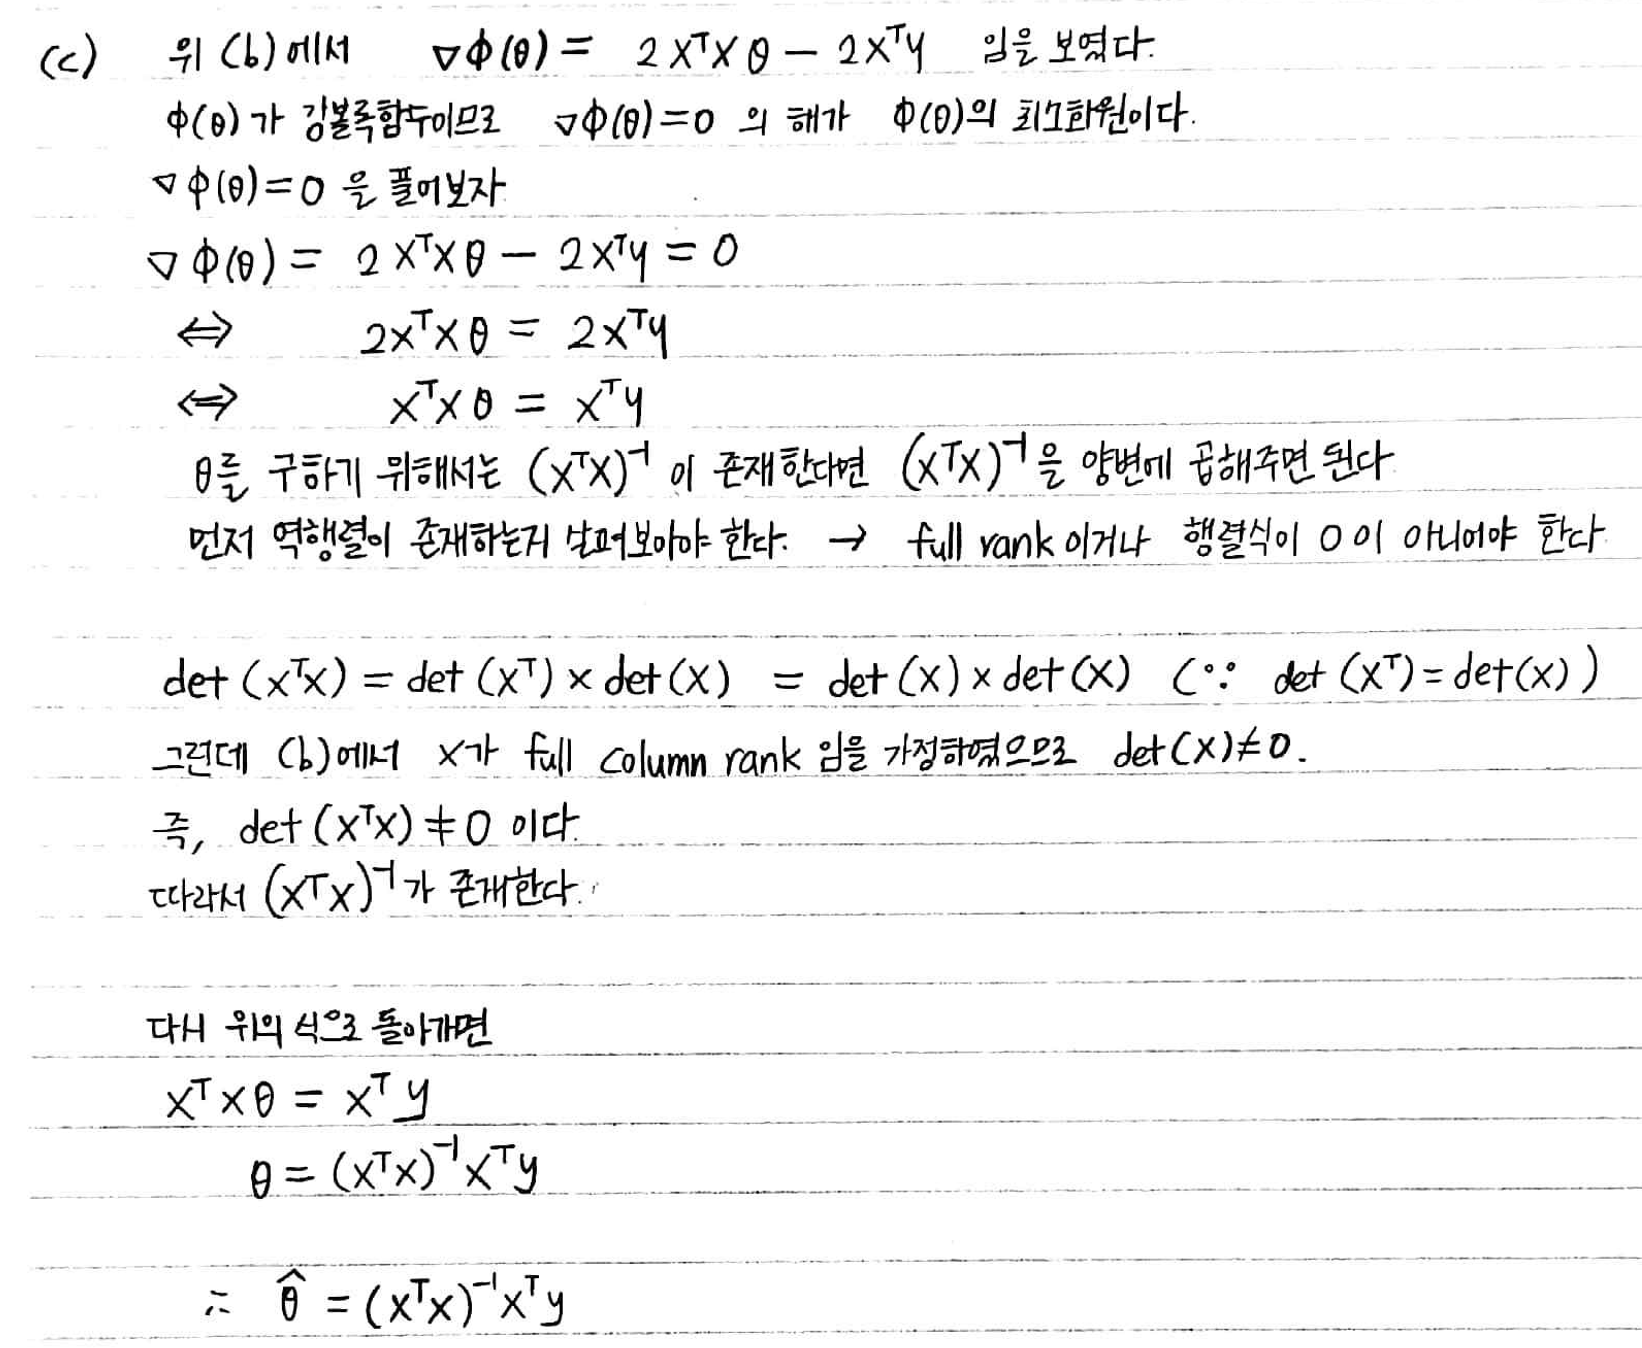 (c) 위 (b)에서 ∇Φ(θ) = 2XᵀXθ − 2Xᵀy 임을 보였다.
Φ(θ)가 강볼록함수이므로 ∇Φ(θ)=0 의 해가 Φ(θ)의 최소화원이다.
∇Φ(θ)=0 을 풀어보자
∇Φ(θ) = 2XᵀXθ − 2Xᵀy = 0
⇔ 2XᵀXθ = 2Xᵀy
⇔ XᵀXθ = Xᵀy
θ를 구하기 위해서는 (XᵀX)⁻¹ 이 존재한다면 (XᵀX)⁻¹을 양변에 곱해주면 된다
먼저 역행렬이 존재하는지 살펴보아야 한다. → full rank 이거나 행렬식이 0이 아니어야 한다
det (XᵀX) = det (Xᵀ) × det (X) = det (X) × det (X) (∵ det (Xᵀ) = det(X))
그런데 (b)에서 X가 full column rank 임을 가정하였으므로 det(X)≠0.
즉, det (XᵀX) ≠ 0 이다.
따라서 (XᵀX)⁻¹가 존재한다.
다시 위의 식으로 돌아가면
XᵀXθ = Xᵀy
θ = (XᵀX)⁻¹Xᵀy
∴ θ̂ = (XᵀX)⁻¹Xᵀy